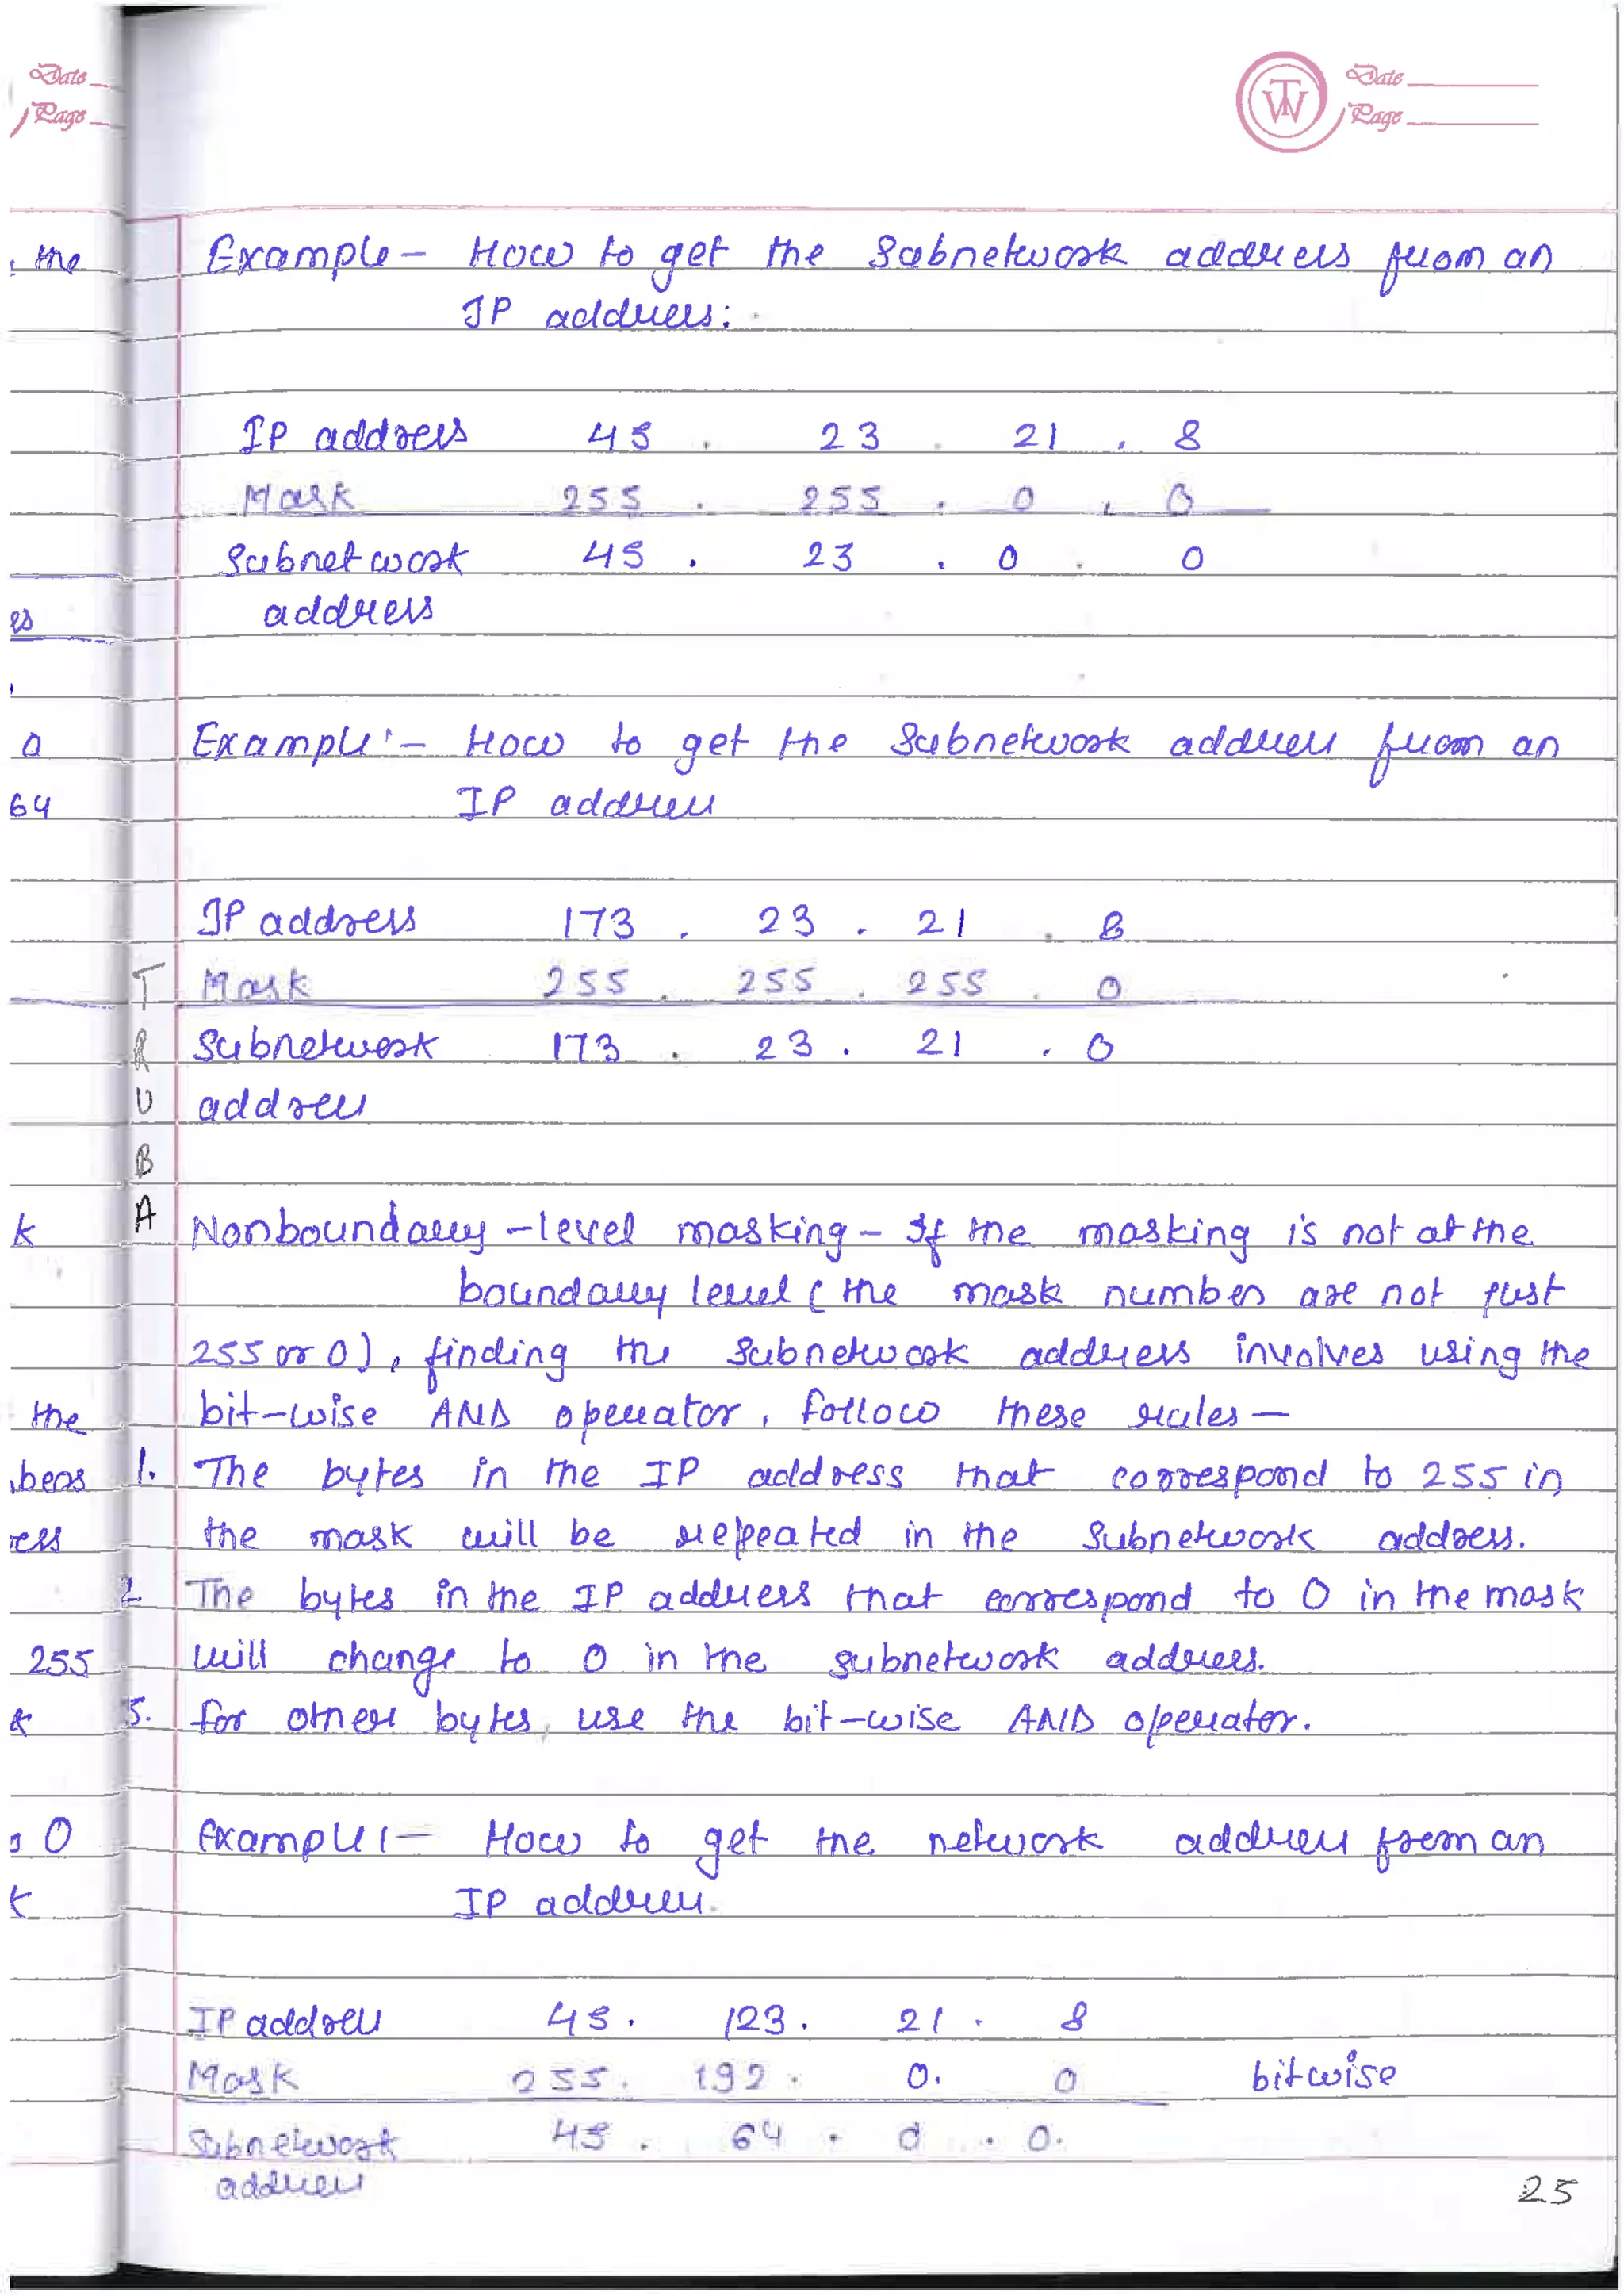 Date
Page
Date
Page
the
Example – How to get the Subnetwork address from an
IP address:
IP address 45 . 23 . 21 . 8
Mask 255 . 255 . 0 . 0
Subnetwork 45 . 23 . 0 . 0
es
address
0
Example :- How to get the Subnetwork address from an
64
IP address
IP address 173 . 23 . 21 . 8
T Mask 255 . 255 . 255 . 0
R Subnetwork 173 . 23 . 21 . 0
U address
B
k
A Nonboundary -level masking – If the masking is not at the
boundary level ( the mask number are not just
255 or 0), finding the Subnetwork address involves using the
the
bit-wise AND operator, follow these rules —
bers
1. The bytes in the IP address that correspond to 255 in
ress
the mask will be repeated in the Subnetwork address.
2. The bytes in the IP address that correspond to 0 in the mask
255
will change to 0 in the subnetwork address.
&
3. for other bytes, use the bit-wise AND operator.
0
Example :- How to get the network address from an
IP address.
IP address 45 . 123 . 21 . 8
Mask 255 . 192 . 0 . 0 bitwise
Subnetwork 45 . 64 . 0 . 0.
address
25